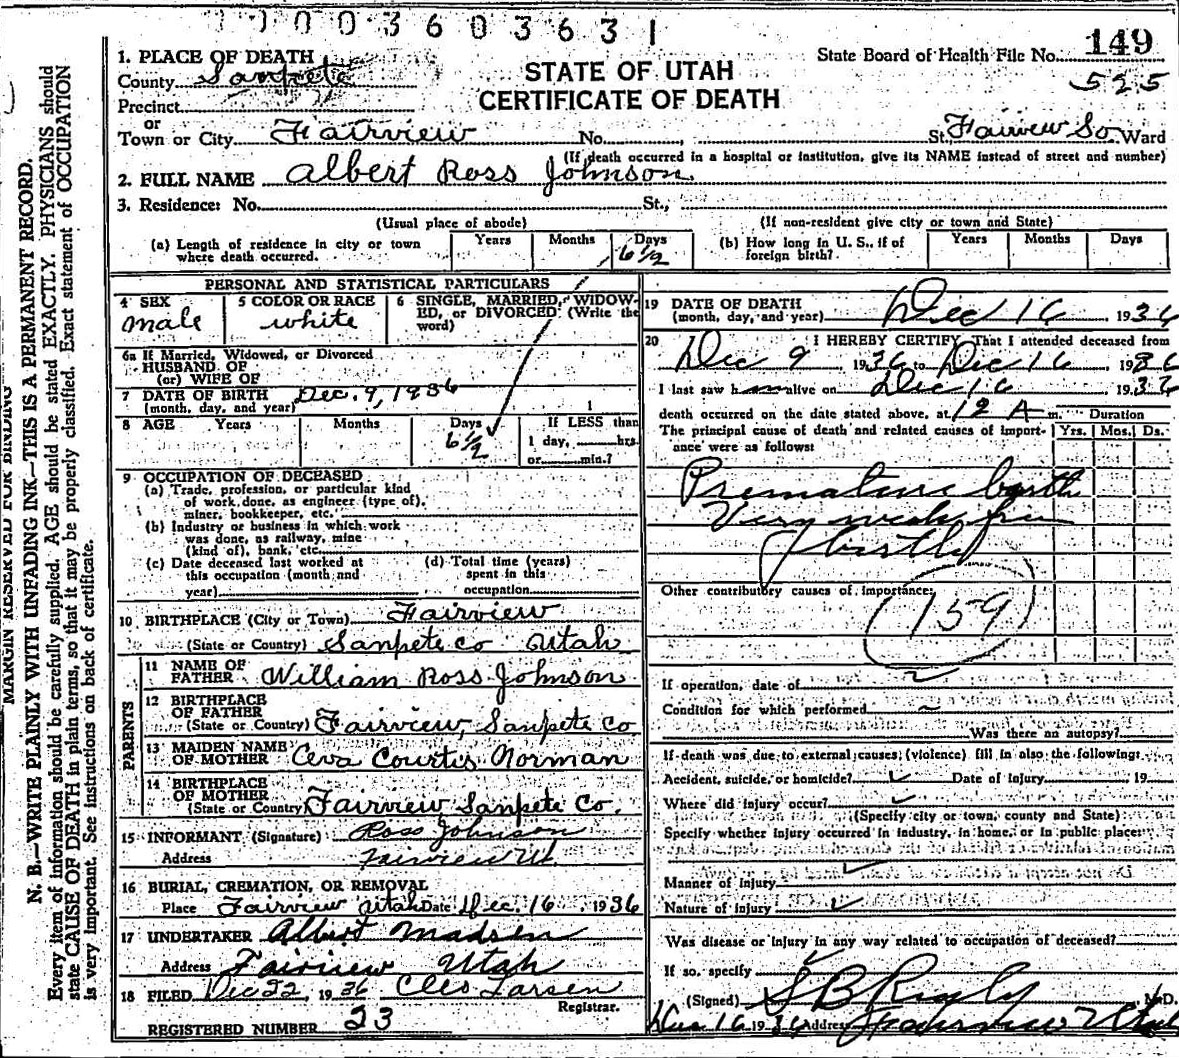 0003603631
149
State Board of Health File No.
525
1. PLACE OF DEATH
County Sanpete
STATE OF UTAH
CERTIFICATE OF DEATH
Precinct
or
Town or City Fairview No. St, Fairview So Ward
(If death occurred in a hospital or institution, give its NAME instead of street and number)
2. FULL NAME Albert Ross Johnson
3. Residence: No. St.,
(Usual place of abode) (If non-resident give city or town and State)
(a) Length of residence in city or town where death occurred. Years Months Days 6 1/2
(b) How long in U. S., if of foreign birth? Years Months Days
PERSONAL AND STATISTICAL PARTICULARS
4 SEX male
5 COLOR OR RACE white
6 SINGLE, MARRIED, WIDOWED, or DIVORCED (Write the word)
6a If Married, Widowed, or Divorced
HUSBAND OF
(or) WIFE OF
7 DATE OF BIRTH (month, day, and year) Dec. 9, 1936
8 AGE Years Months Days 6 1/2 If LESS than 1 day, hrs. or min.?
9 OCCUPATION OF DECEASED
(a) Trade, profession, or particular kind of work done, as engineer (type of), miner, bookkeeper, etc.
(b) Industry or business in which work was done, as railway, mine (kind of), bank, etc.
(c) Date deceased last worked at this occupation (month and year)
(d) Total time (years) spent in this occupation
10 BIRTHPLACE (City or Town) Fairview
(State or Country) Sanpete Co Utah
PARENTS
11 NAME OF FATHER William Ross Johnson
12 BIRTHPLACE OF FATHER (State or Country) Fairview, Sanpete Co
13 MAIDEN NAME OF MOTHER Ceva Courtis Norman
14 BIRTHPLACE OF MOTHER (State or Country) Fairview Sanpete Co.
15 INFORMANT (Signature) Ross Johnson
Address Fairview Ut.
16 BURIAL, CREMATION, OR REMOVAL
Place Fairview Utah Date Dec. 16 1936
17 UNDERTAKER Albert Madsen
Address Fairview Utah
18 FILED Dec 22, 1936 Cleo Larsen
Registrar.
REGISTERED NUMBER 23
19 DATE OF DEATH (month, day, and year) Dec 16 1936
20 I HEREBY CERTIFY, That I attended deceased from
Dec 9 1936 to Dec 16 1936
I last saw h m alive on Dec 16 1936
death occurred on the date stated above, at 12 A m. Duration
The principal cause of death and related causes of importance were as follows: Yrs. Mos. Ds.
Premature birth
Very weak from
birth
Other contributory causes of importance:
(159)
If operation, date of
Condition for which performed
Was there an autopsy?
If death was due to external causes (violence) fill in also the following:
Accident, suicide, or homicide? Date of Injury 19
Where did injury occur?
(Specify city or town, county and State)
Specify whether injury occurred in industry, in home, or in public place:
Manner of Injury
Nature of Injury
Was disease or injury in any way related to occupation of deceased?
If so, specify
(Signed) S B Rigby M.D.
Dec 16 1936 Address Fairview Utah
MARGIN RESERVED FOR BINDING
N. B.—WRITE PLAINLY WITH UNFADING INK—THIS IS A PERMANENT RECORD.
Every item of information should be carefully supplied. AGE should be stated EXACTLY. PHYSICIANS should
state CAUSE OF DEATH in plain terms, so that it may be properly classified. Exact statement of OCCUPATION
is very important. See instructions on back of certificate.